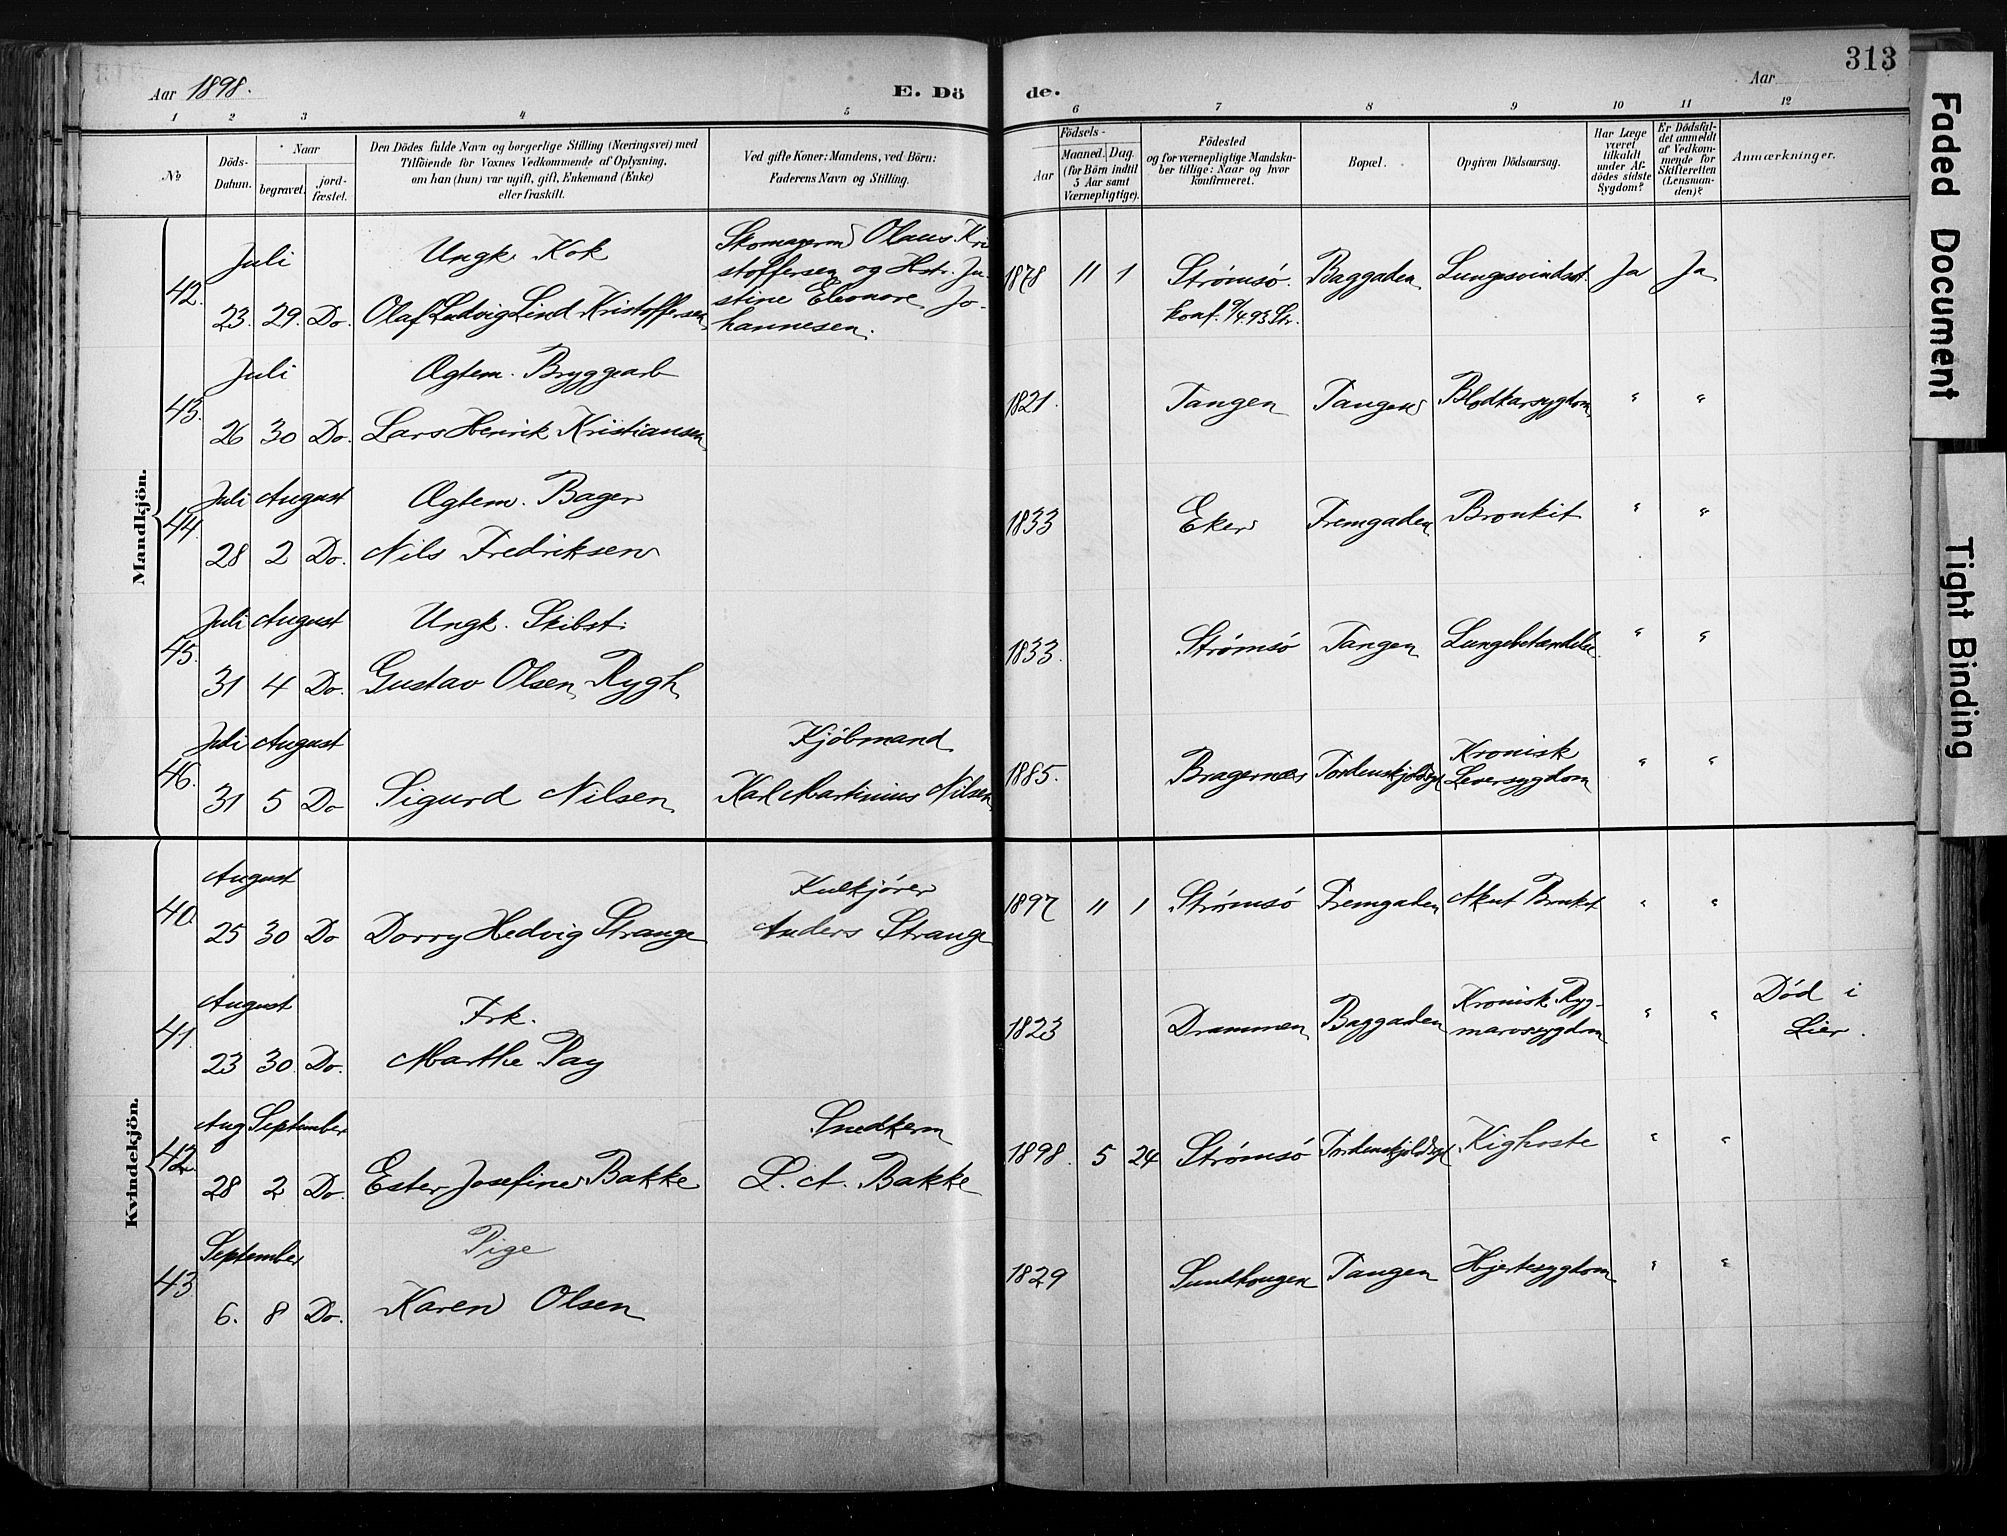 313
Aar 1898.
E. Dö de.
Aar
1 2 3 4 5 6 7 8 9 10 11 12
No
Döds-
Datum.
Naar
begravet.
jord-
fæstet.
Den Dödes fulde Navn og borgerlige Stilling (Næringsvei) med
Tilföiende for Voxnes Vedkommende af Oplysning,
om han (hun) var ugift, gift, Enkemand (Enke)
eller fraskilt.
Ved gifte Koner: Mandens, ved Börn:
Faderens Navn og Stilling.
Födsels-
Aar
Maaned.
Dag
(for Börn indtil
5 Aar samt
Værnepligtige).
Födested
og for værnepligtige Mandska-
ber tillige: Naar og hvor
konfirmeret.
Bopæl.
Opgiven Dödsaarsag.
Har Læge
været
tilkaldt
under Af-
dödes sidste
Sygdom?
Er Dödsfal-
det anmeldt
af Vedkom-
mende for
Skifteretten
(Lensman-
den)?
Anmærkninger.
Mandkjön.
42. Juli 23. 29. Do.
Ungk. Kok
Olaf Ludvig Lind Kristoffersen
Skomagerm Olaus Kri
stoffersen og Hstr. Ju-
stine Eleonore Jo-
hannesen.
1878 11 1 Strømsø. Baggaden Lungesvindsot Ja Ja
Konf. 9/4 93 Str.
43. Juli 26 30 Do.
Ægtem. Bryggearb
Lars Henrik Kristiansen
1821. Tangen Tangen Blodkarsygdom " "
44. Juli August 28 2 Do.
Ægtem. Bager
Nils Fredriksen
1833 Eker Fremgaden Bronkit " "
45. Juli August 31 4 Do.
Ungk. Skibst.
Gustav Olsen Rygh
1833. Strømsö Tangen Lungebetændelse " "
46. Juli August 31 5 Do
Sigurd Nilsen
Kjöbmand
Karl Martinius Nilsen
1885. Bragernæs Tordenskjoldsgd Kronisk
Leversygdom " "
Kvindekjön.
40. August 25 30 Do
Dorry Hedvig Strange
Kulkjörer
Anders Strange
1897 11 1 Strømsö Fremgaden Akut Bronkit " "
41. August 23 30. Do.
Frk.
Marthe Pay
1823 Drammen Baggaden Kronisk Ryg-
marvssygdom " " Död i
Lier.
42 Aug September 28 2 Do.
Ester Josefine Bakke
Snedkerm
L. A. Bakke
1898. 5 24 Strømsö Tordenskjoldsgd Kighoste " "
43. September 6. 8 Do.
Pige
Karen Olsen
1829 Sundhougen Tangen Hjertesygdom " "
Faded Document
Tight Binding